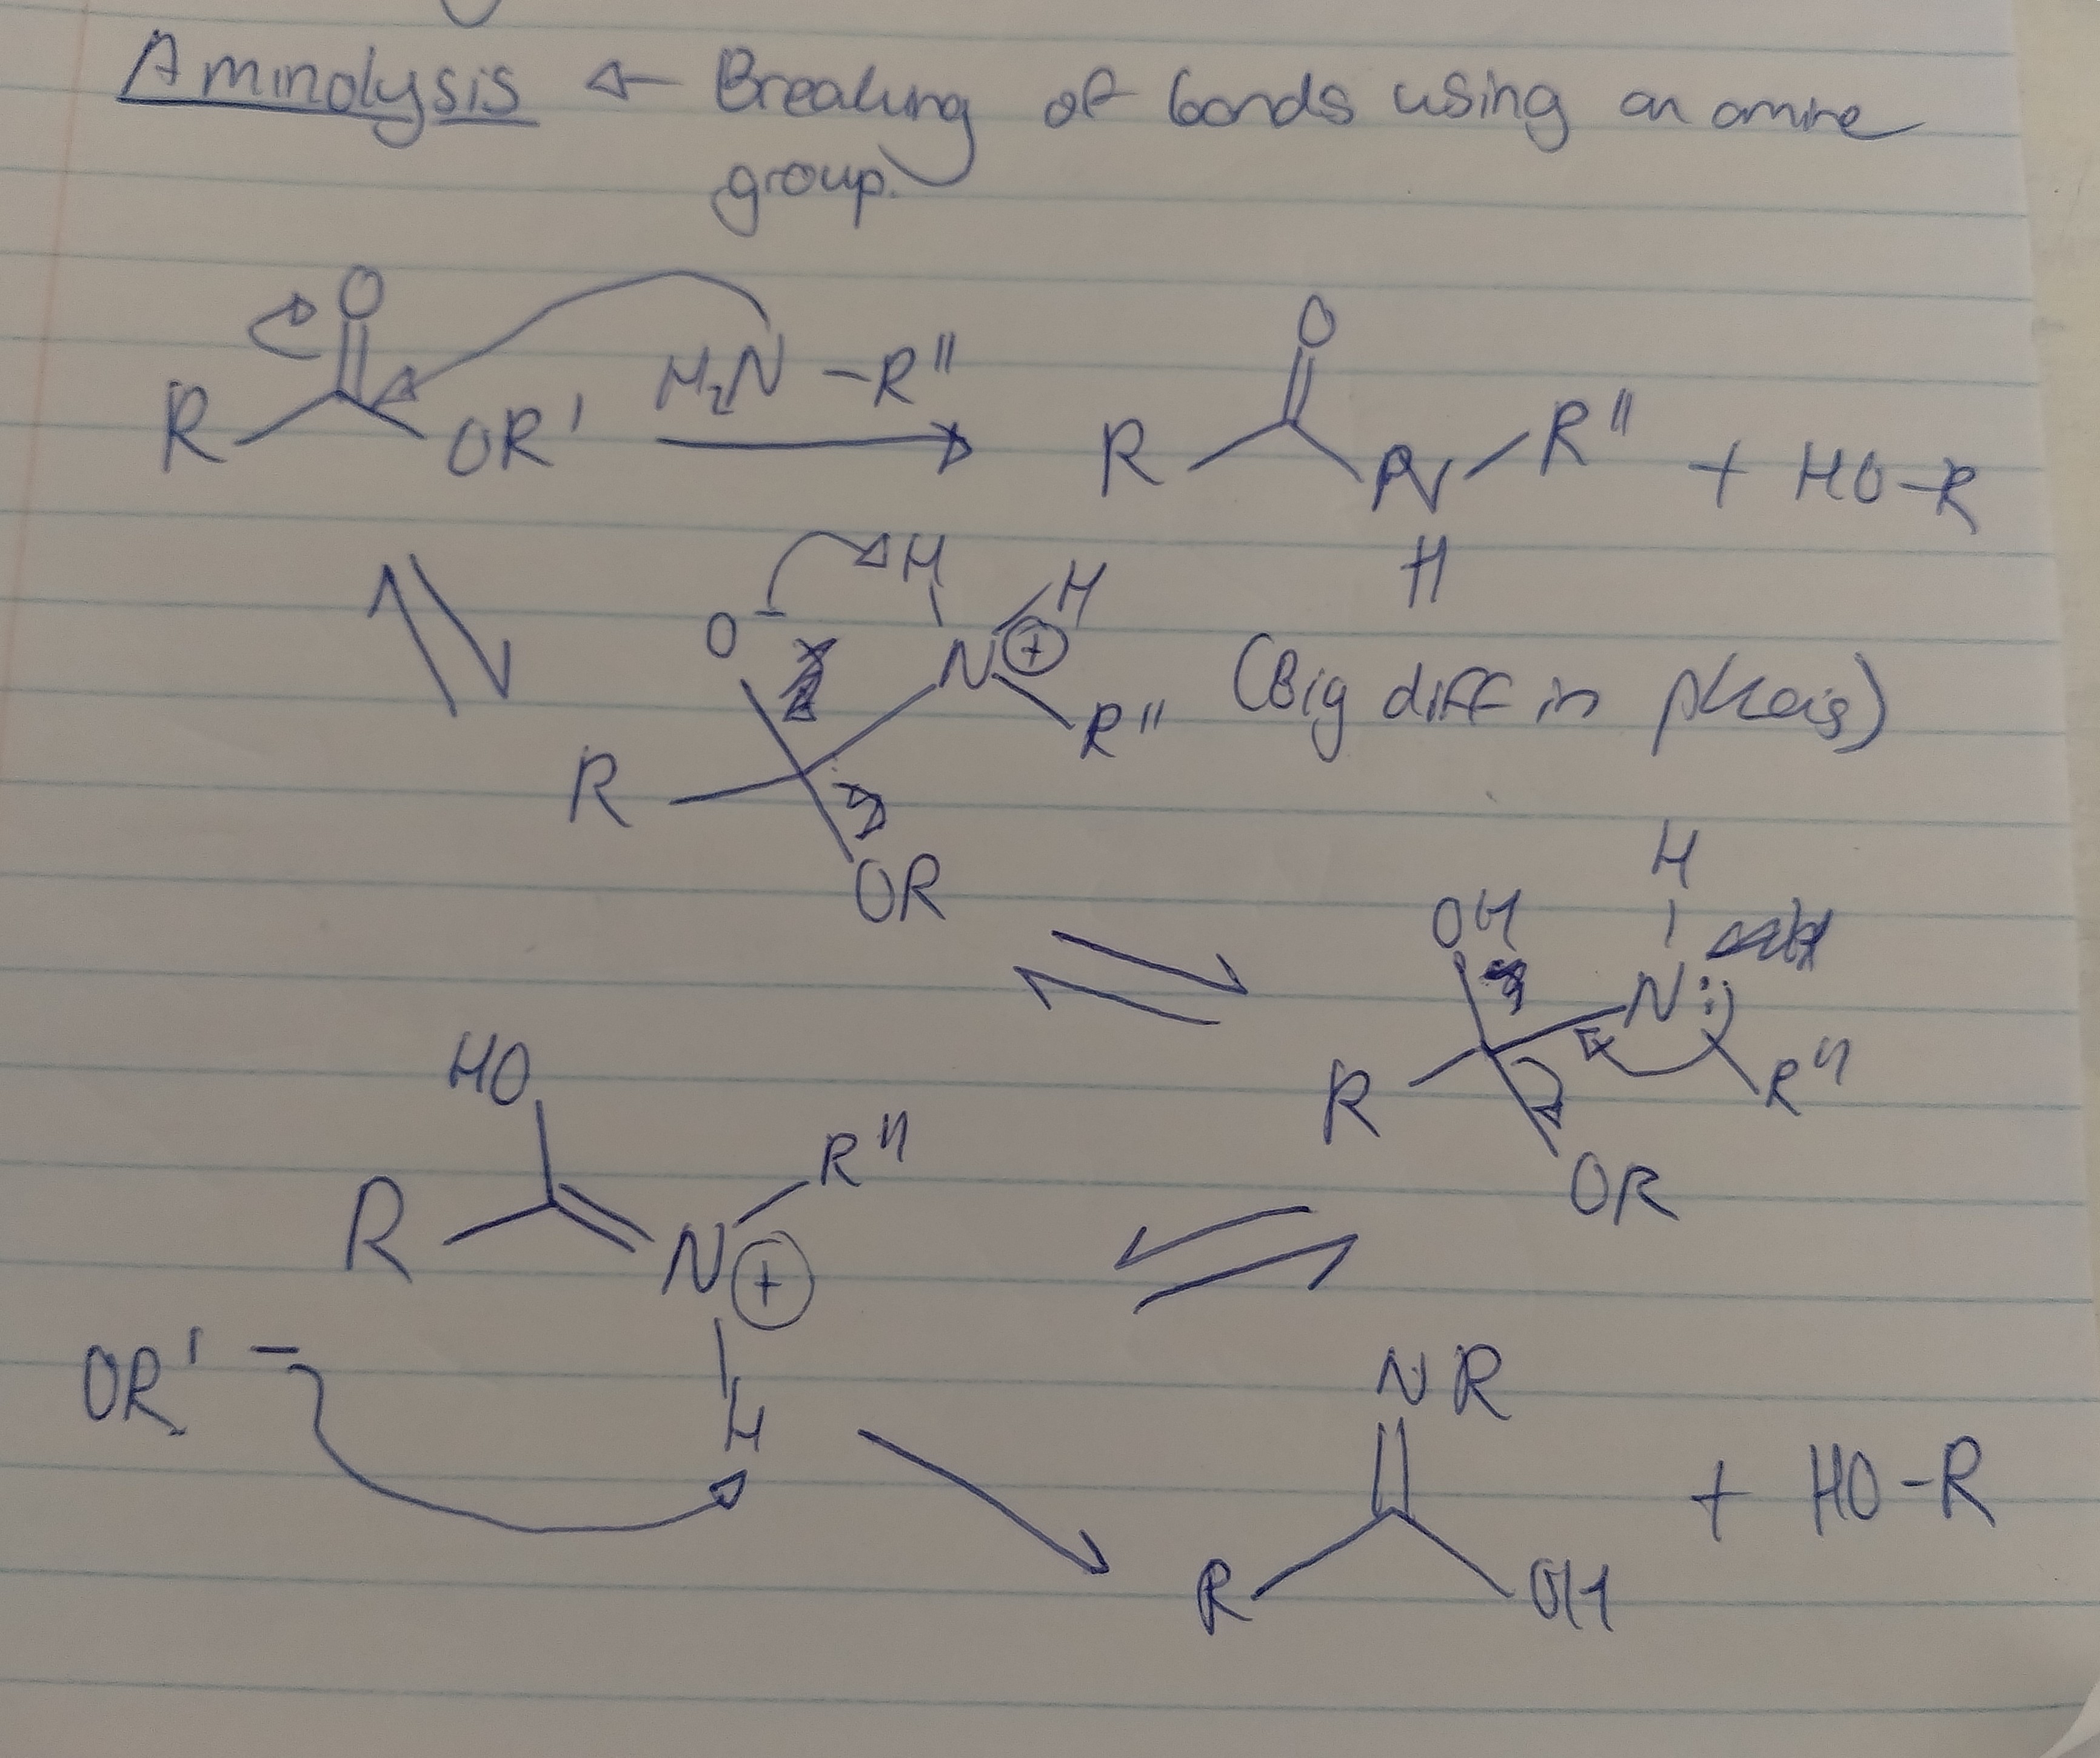 Aminolysis ← Breaking of bonds using an amine
group.
O O
R OR' H₂N-R" R N R" + HO-R
H
O⁻ H H
N ⊕ R" (Big diff in pKa's)
R
OR
H
OH
N:
R R"
OR
HO
R"
R N ⊕
OR' ⁻
H
NR
+ HO-R
R OH